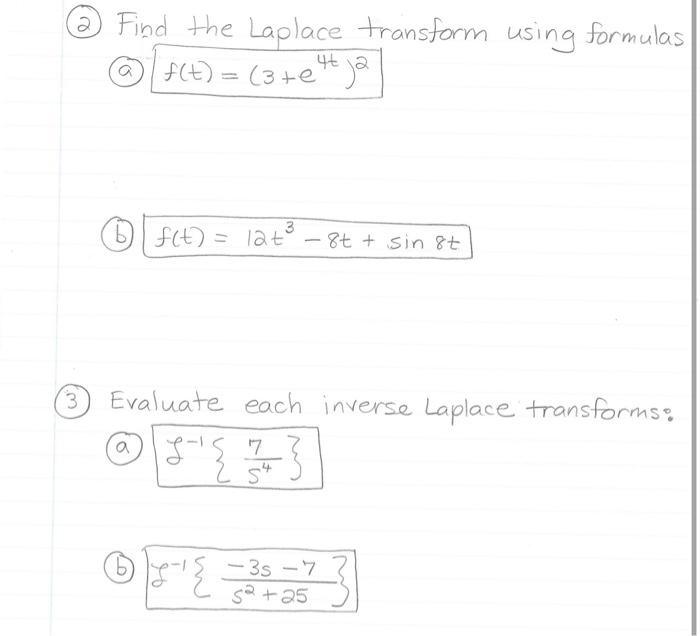 ② Find the Laplace transform using formulas
ⓐ f(t) = (3+e^{4t})^2
ⓑ f(t) = 12t^3 - 8t + sin 8t
③ Evaluate each inverse Laplace transforms:
ⓐ ℒ^{-1}{ 7/s^4 }
ⓑ ℒ^{-1}{ (-3s - 7)/(s^2 + 25) }